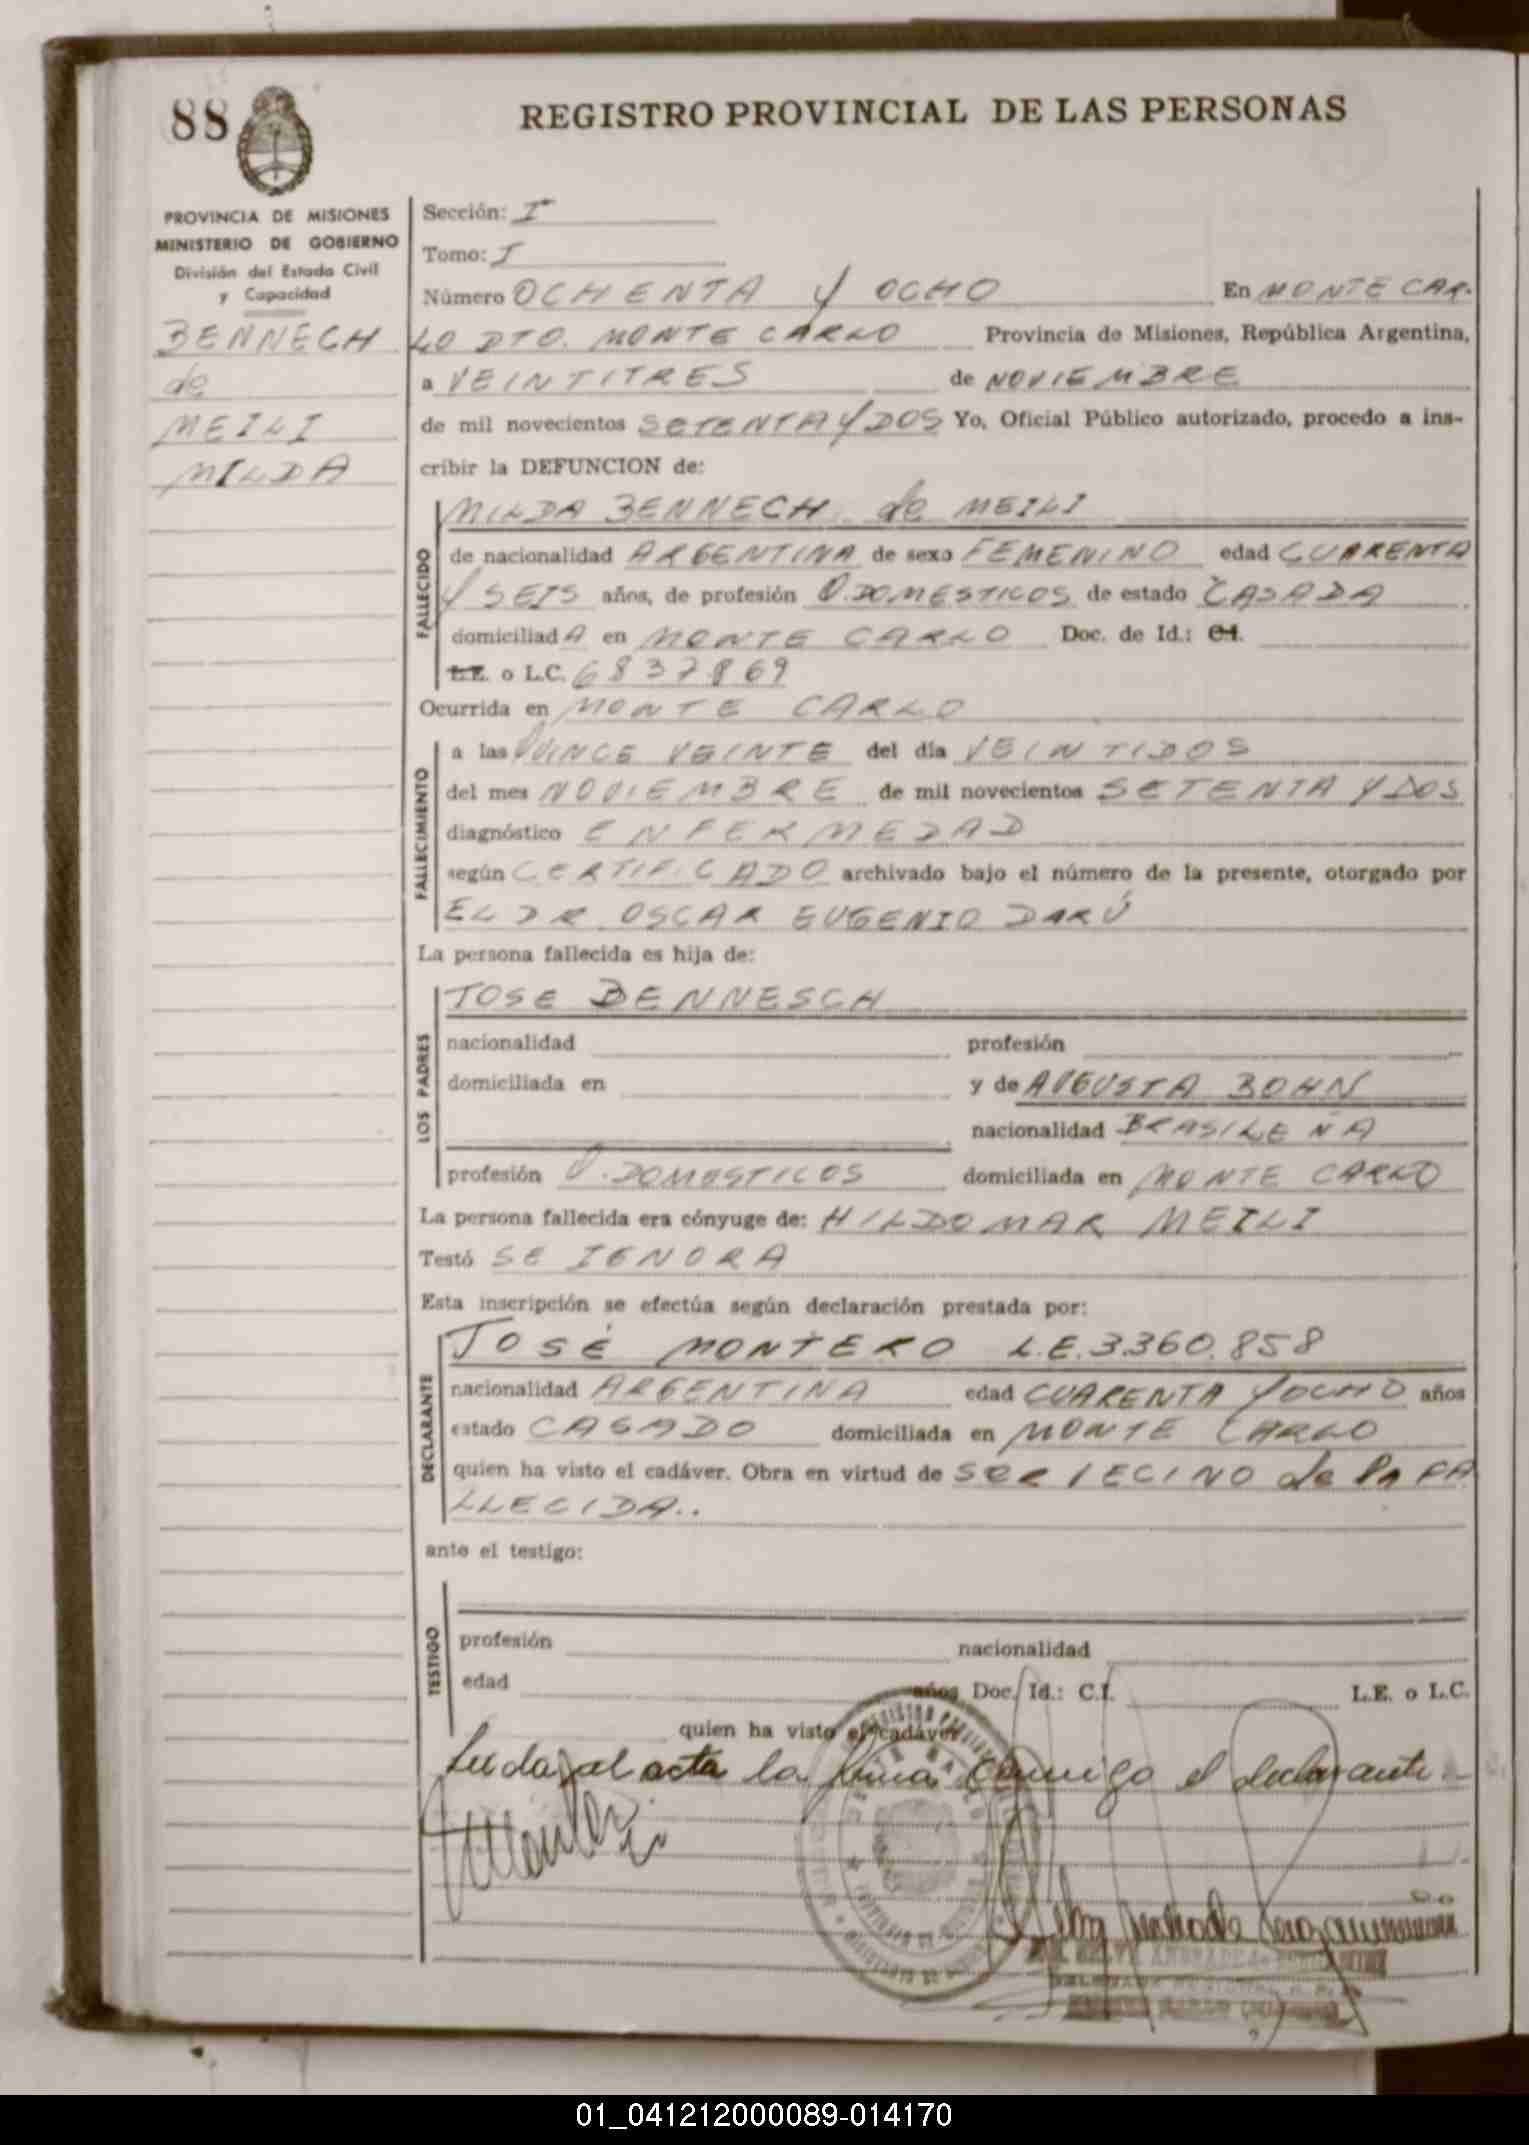 88
REGISTRO PROVINCIAL DE LAS PERSONAS
PROVINCIA DE MISIONES
MINISTERIO DE GOBIERNO
División del Estado Civil
y Capacidad
BENNECH
de
MEILI
MILDA
Sección: I
Tomo: I
Número OCHENTA Y OCHO En MONTE CAR-
LO DTO. MONTE CARLO Provincia de Misiones, República Argentina,
a VEINTITRES de NOVIEMBRE
de mil novecientos SETENTA Y DOS Yo, Oficial Público autorizado, procedo a ins-
cribir la DEFUNCION de:
FALLECIDO
MILDA BENNECH de MEILI
de nacionalidad ARGENTINA de sexo FEMENINO edad CUARENTA
Y SEIS años, de profesión Q.DOMESTICOS de estado CASADA
domiciliadA en MONTE CARLO Doc. de Id.: CI.
L.E. o L.C. 6837869
Ocurrida en MONTE CARLO
FALLECIMIENTO
a las QUINCE VEINTE del día VEINTIDOS
del mes NOVIEMBRE de mil novecientos SETENTA Y DOS
diagnóstico ENFERMEDAD
según CERTIFICADO archivado bajo el número de la presente, otorgado por
EL DR. OSCAR EUGENIO DARÚ
La persona fallecida es hija de:
LOS PADRES
JOSE BENNESCH
nacionalidad profesión
domiciliada en y de AUGUSTA BOHN
nacionalidad BRASILEÑA
profesión Q.DOMESTICOS domiciliada en MONTE CARLO
La persona fallecida era cónyuge de: HILDOMAR MEILI
Testó SE IGNORA
Esta inscripción se efectúa según declaración prestada por:
DECLARANTE
JOSÉ MONTERO L.E. 3.360.858
nacionalidad ARGENTINA edad CUARENTA Y OCHO años
estado CASADO domiciliada en MONTE CARLO
quien ha visto el cadáver. Obra en virtud de SER VECINO de la FA
LLECIDA..
ante el testigo:
TESTIGO
profesión nacionalidad
edad años Doc. Id.: C.I. L.E. o L.C.
quien ha visto el cadáver
Leida el acta la firma conmigo el declarante
01_041212000089-014170